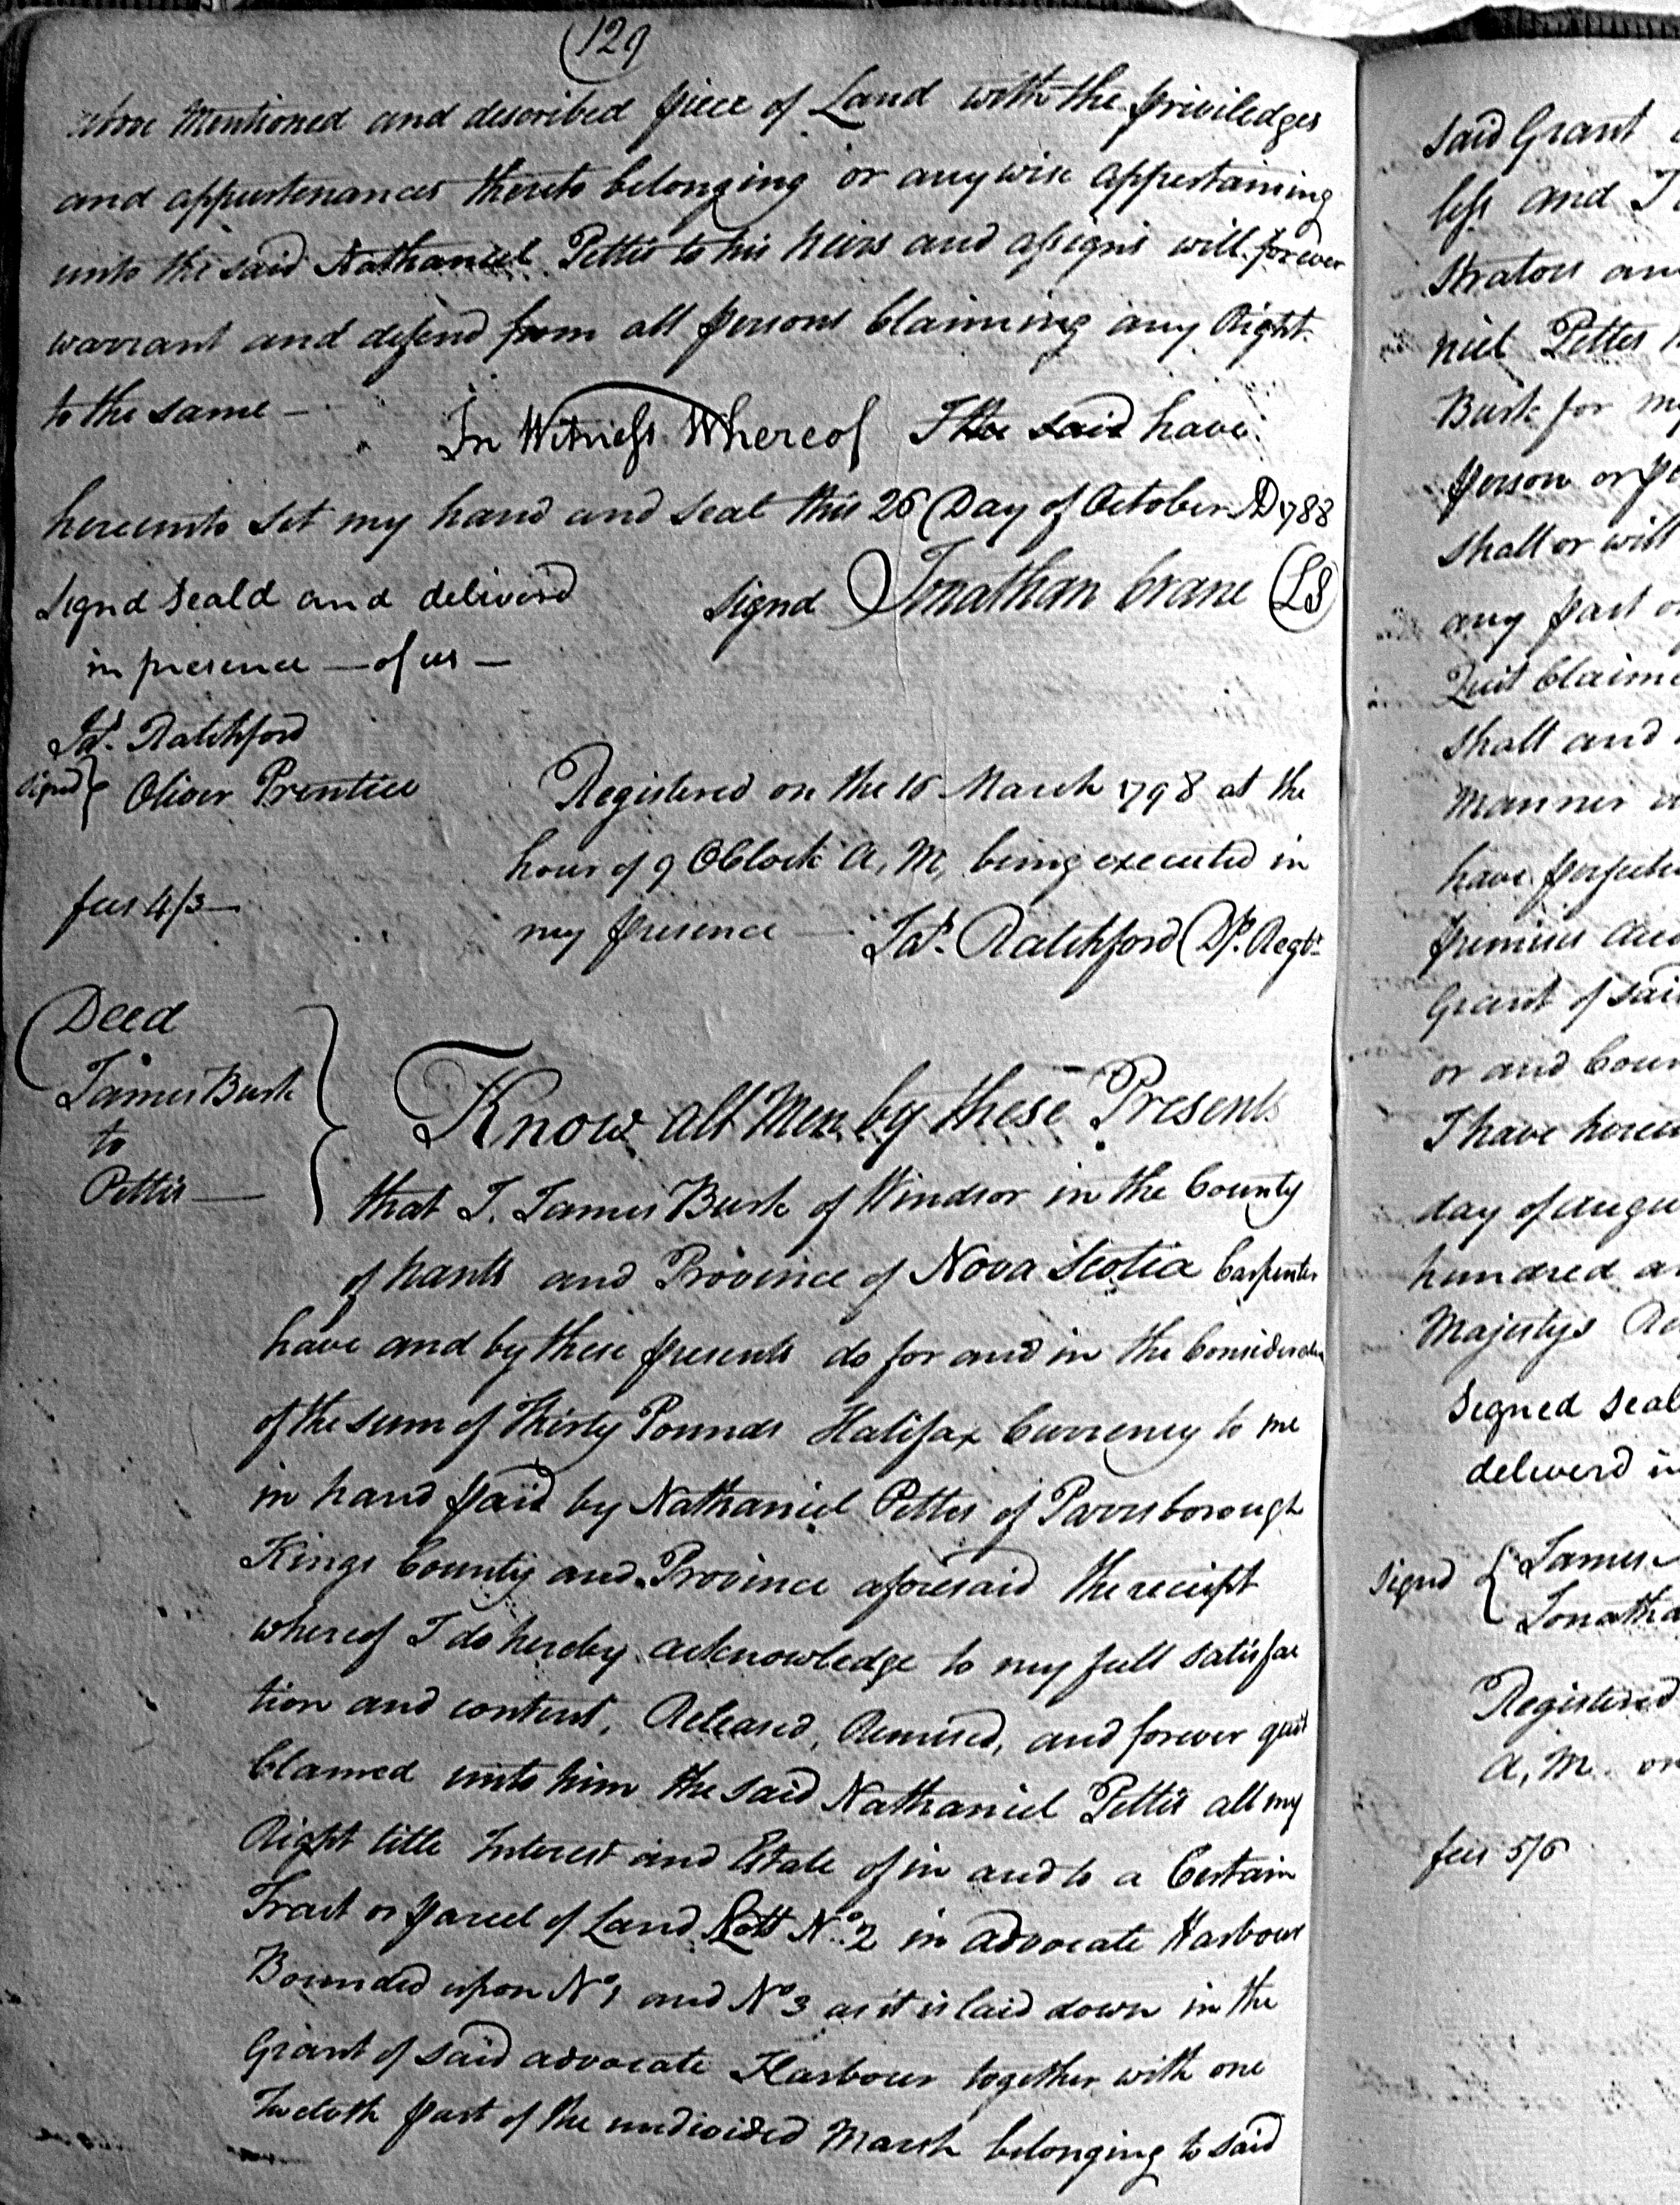 129
above Mentioned and described piece of Land with the priviledges
and appurtenances thereto belonging or anywise appertaining
unto the said Nathaniel Pettis to his heirs and assigns will forever
warrant and defend from all persons Claiming any Right
to the same —
In Witness Whereof I the said have
hereunto Set my hand and Seal this 26 Day of October AD 1788
Signd Seald and deliverd
signd Jonathan Crane LS
in presence — of us —
Jas. Ratchford
signd } Oliver Prentice
Registered on the 16 March 1798 at the
hour of 9 OClock A, M, being executed in
fees 4/3 —
my presence — Jas. Ratchford Dp. Regtr
Deed
James Burk
to
Pettis —
Know all Men by these Presents
that I. James Burk of Windsor in the County
of hants and Province of Nova Scotia Carpenter
have and by these presents do for and in the Consideration
of the Sum of Thirty Pounds Halifax Currency to me
in hand paid by Nathaniel Pettes of Parrsborough
Kings County and Province aforesaid the receipt
whereof I do hereby acknowledge to my full satisfac
tion and content, Released, Remised, and forever quit
Claimed unto him the said Nathaniel Pettis all my
Right title Interest and Estate of in and to a Certain
Tract or parcel of Land Lott No. 2 in advocate Harbour
Bounded upon No 1 and No 3 as it is laid down in the
Grant of said advocate Harbour together with one
Twelvth part of the undivided Marsh belonging to said
said Grant
less and
strators and
niel Pettes
Burk for my
person or
shall or will
any part
Quit Claime
shall and
Manner
have
premises and
Grant of said
or and
I have hereu
day of augu
hundred
Majestys
Signed Seal
deliverd in
signd { James
Jonatha
Registered
A, M. on
fees 5/6